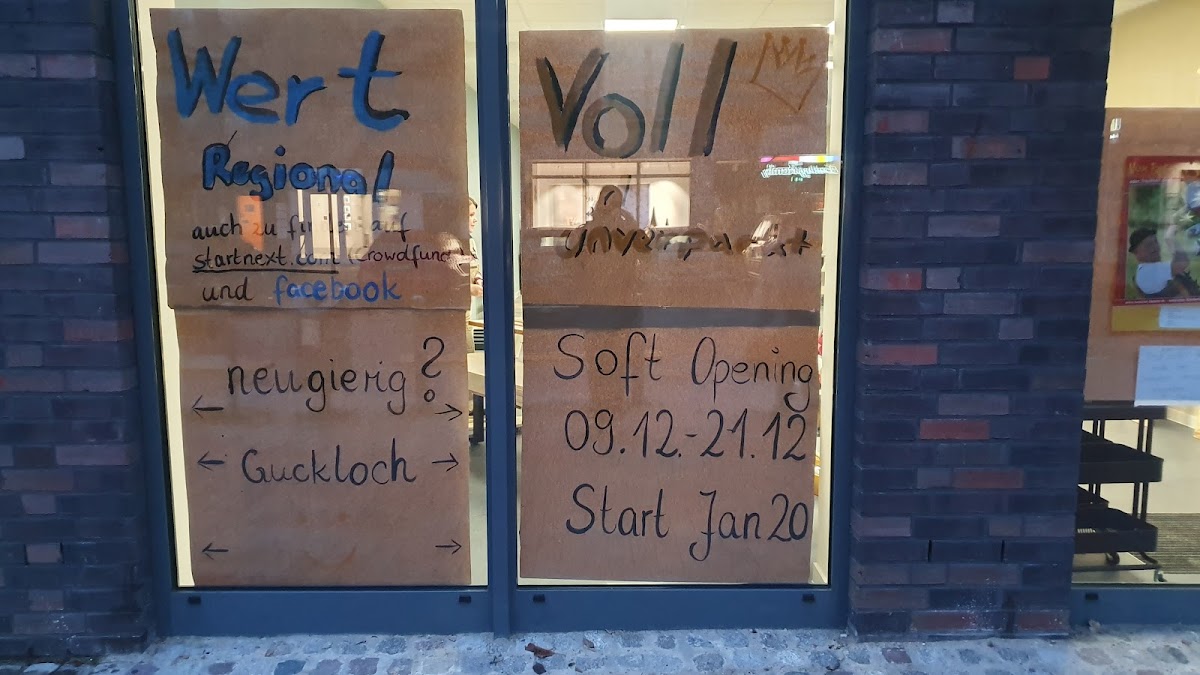 Wert
Regional
auch zu finden auf
startnext.com (Crowdfund
und facebook
neugierig?
← →
← Guckloch →
← →
Voll
unverpackt
Soft Opening
09.12.-21.12
Start Jan 20